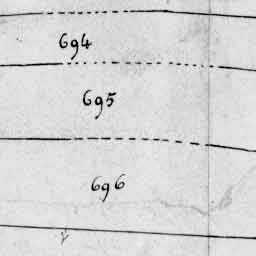 694
695
696